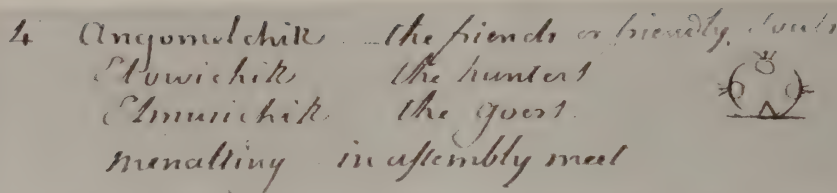 4 Angomelchik the friends or friendly souls
Elowichik the hunters
Elmusichik the goers
Menalting in assembly meet